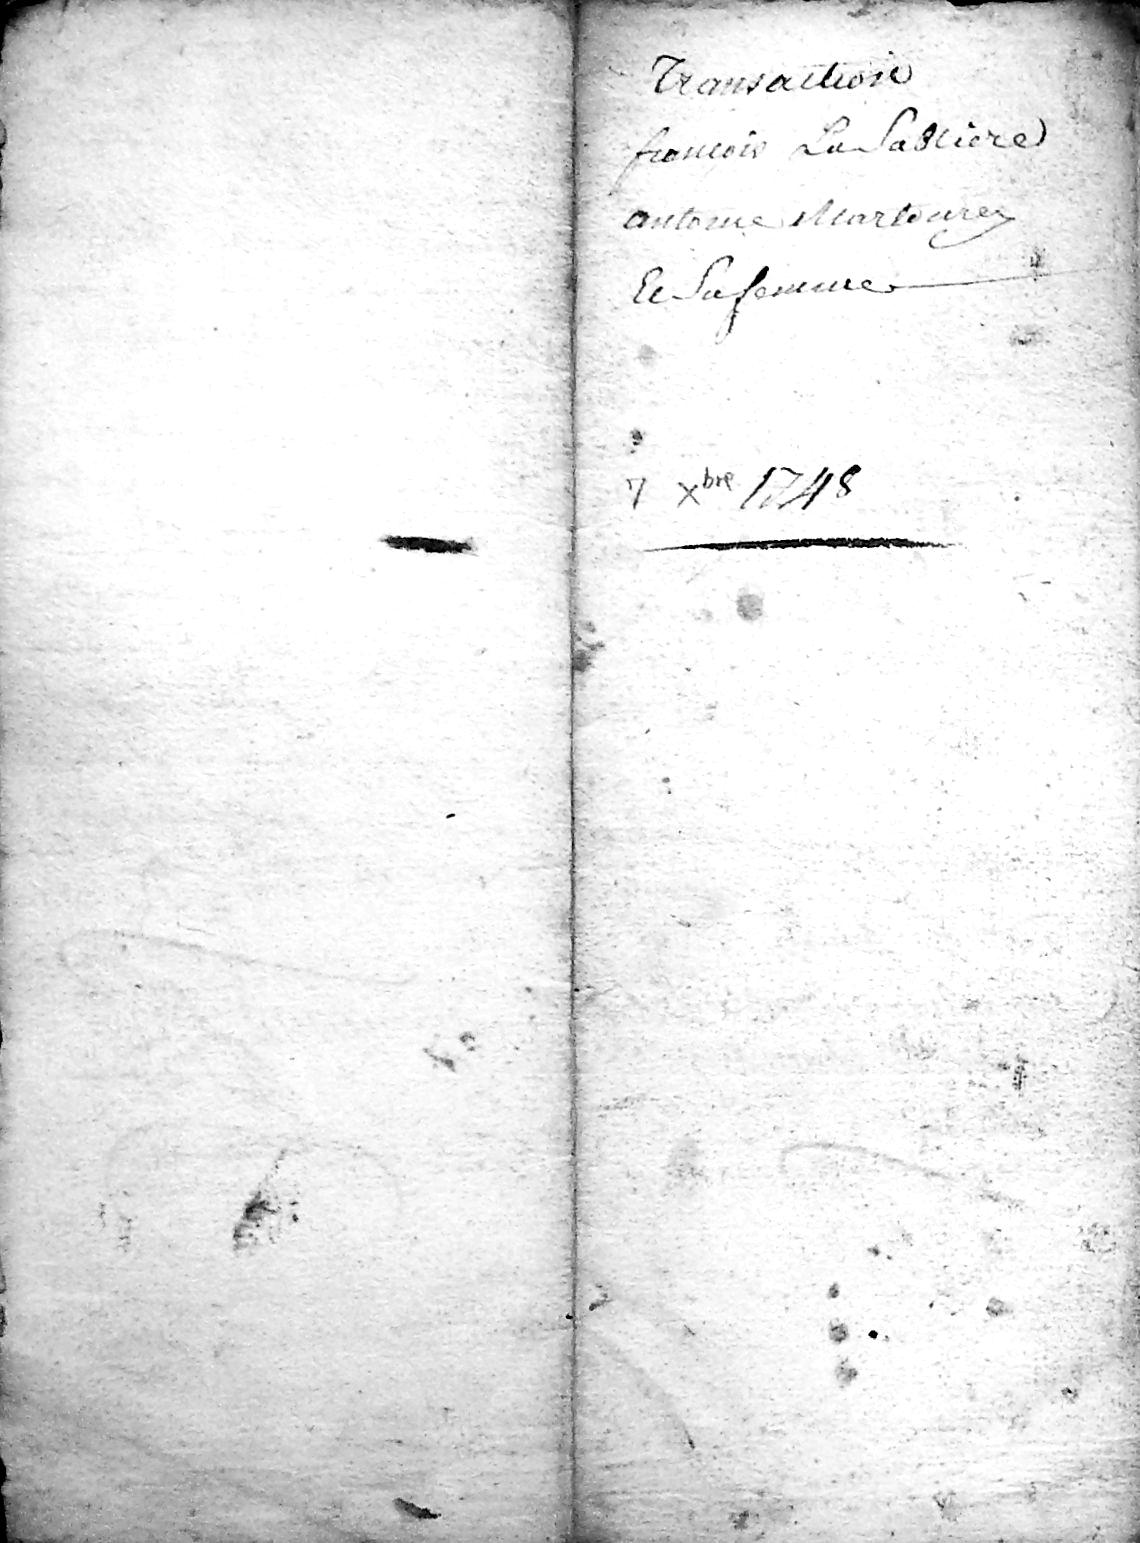 Transaction
françois La Sabliere
antoine Martourey
Et Sa femme
7 Xbre 1748